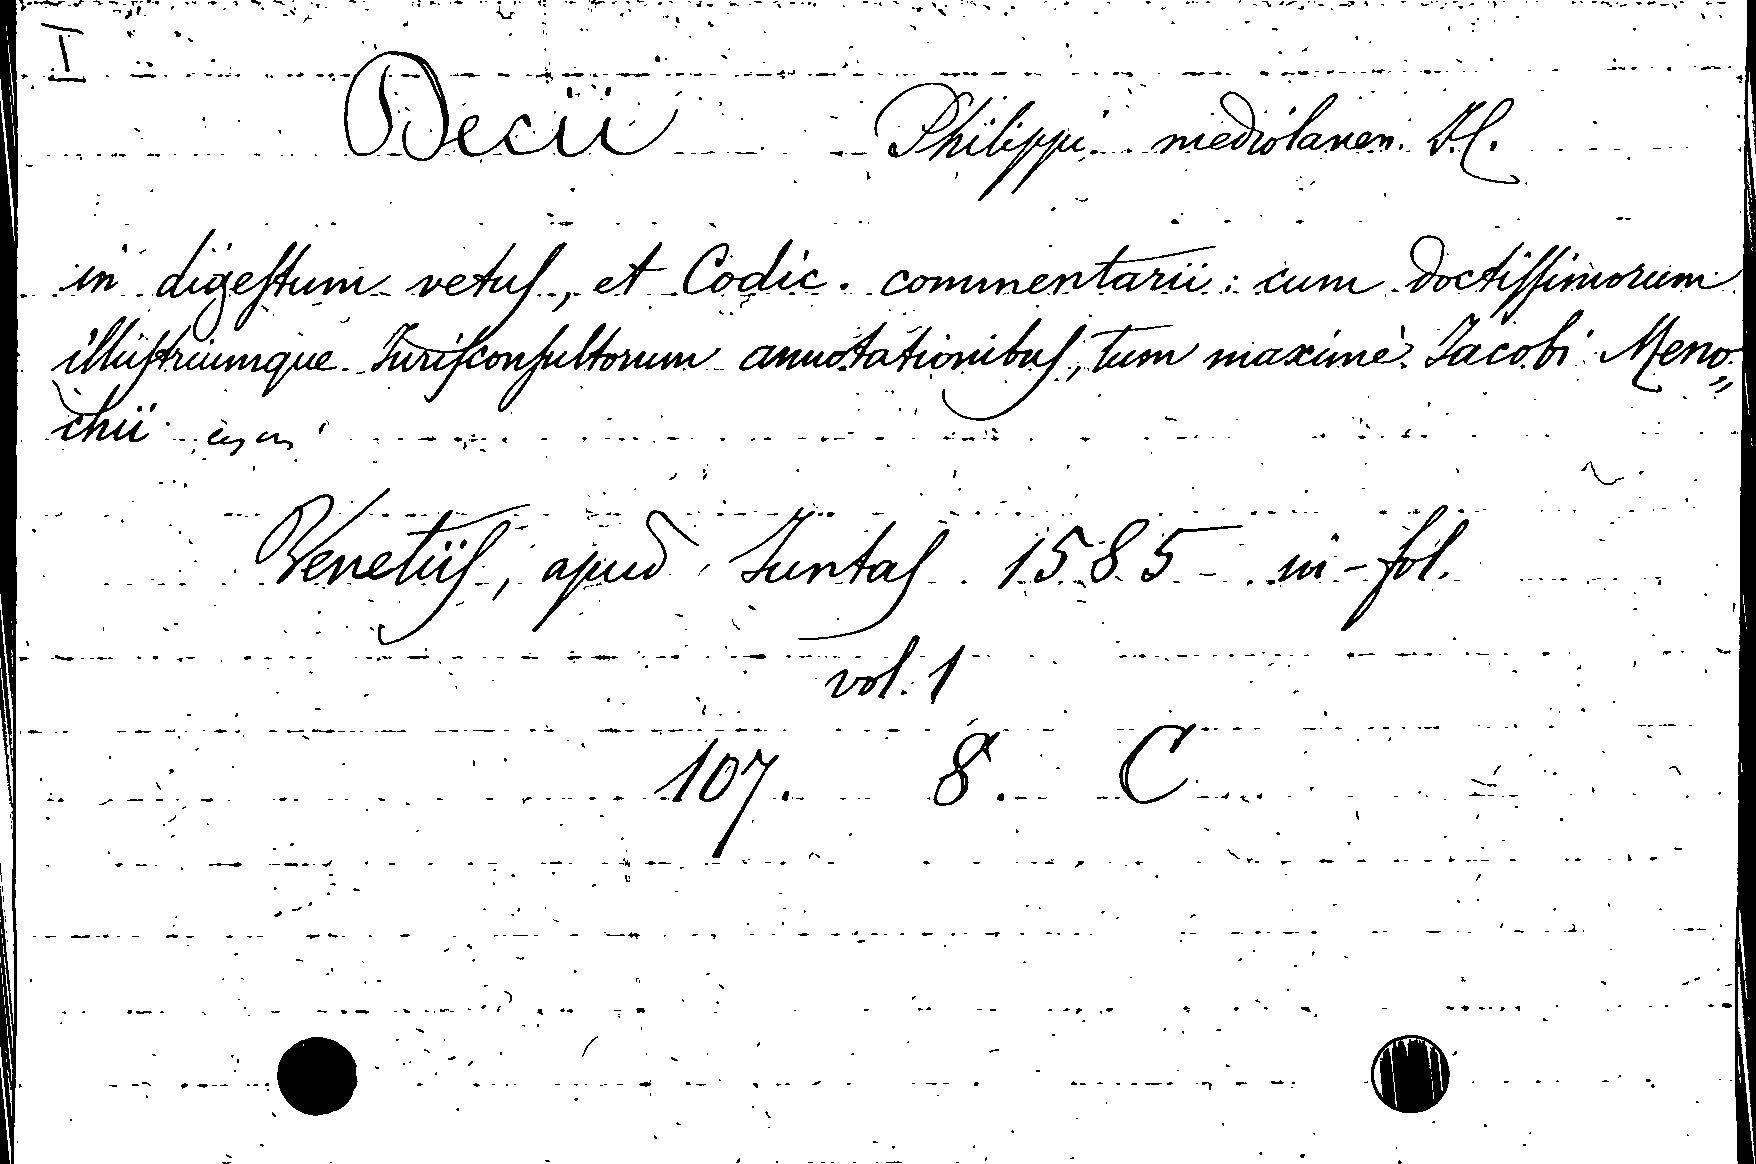 I
Decii Philippi mediolanen. I.C.
in digestum vetus, et Codic. commentarii: cum doctissimorum
illustriumque Jurisconsultorum annotationibus, tum maximè Jacobi Meno„
chii
Venetiis, apud Juntas 1585 in-fol.
vol. 1
107. 8. C